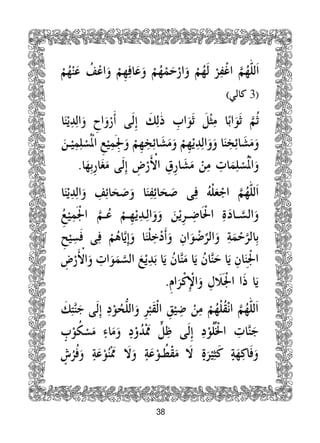 اَللّٰهُمَّ اغْفِرْ لَهُمْ وَارْحَمْهُمْ وَعَافِهِمْ وَاعْفُ عَنْهُمْ
(3 كالي)
ثُمَّ ثَوَابًا مِثْلَ ثَوَابِ ذٰلِكَ إِلَى أَرْوَاحِ وَالِدِيْنَا
وَمَشَائِخِنَا وَوَالِدِيْهِمْ وَمَشَائِخِهِمْ وَلِجَمِيْعِ الْمُسْلِمِـيْنَ
وَالْمُسْلِمَاتِ مِنْ مَشَارِقِ الْأَرْضِ إِلَى مَغَارِبِهَا.
اَللّٰهُمَّ اجْعَلْهُ فِى صَحَائِفِنَا وَصَحَائِفِ وَالِدِيْنَا
وَالسَّادَةِ الْحَاضِـرِيْنَ وَوَالِـدِيْـهِمْ عُـمَّ الْجَمِيْعُ
بِالرَّحْمَةِ وَالرِّضْوَانِ وَأَدْخِلْنَا وَإِيَّاهُمْ فِى فَسِيْحِ
الْجِنَانِ يَا حَنَّانُ يَا مَنَّانُ يَا بَدِيْعَ السَّمَوَاتِ وَالْأَرْضِ
يَا ذَا الْجَلَالِ وَالْإِكْرَامِ.
اَللّٰهُمَّ انْقُلْهُمْ مِنْ ضِيْقِ الْقَبْرِ وَاللُّحُوْدِ إِلَى جَنَّتِكَ
جَنَّاتِ الْخُلُوْدِ إِلَى ظِلٍّ مَمْدُوْدٍ وَمَاءٍ مَسْكُوْبٍ
وَفَاكِهَةٍ كَثِيْرَةٍ لَا مَقْطُـوْعَةٍ وَلَا مَمْنُوْعَةٍ وَفُرُشٍ
38